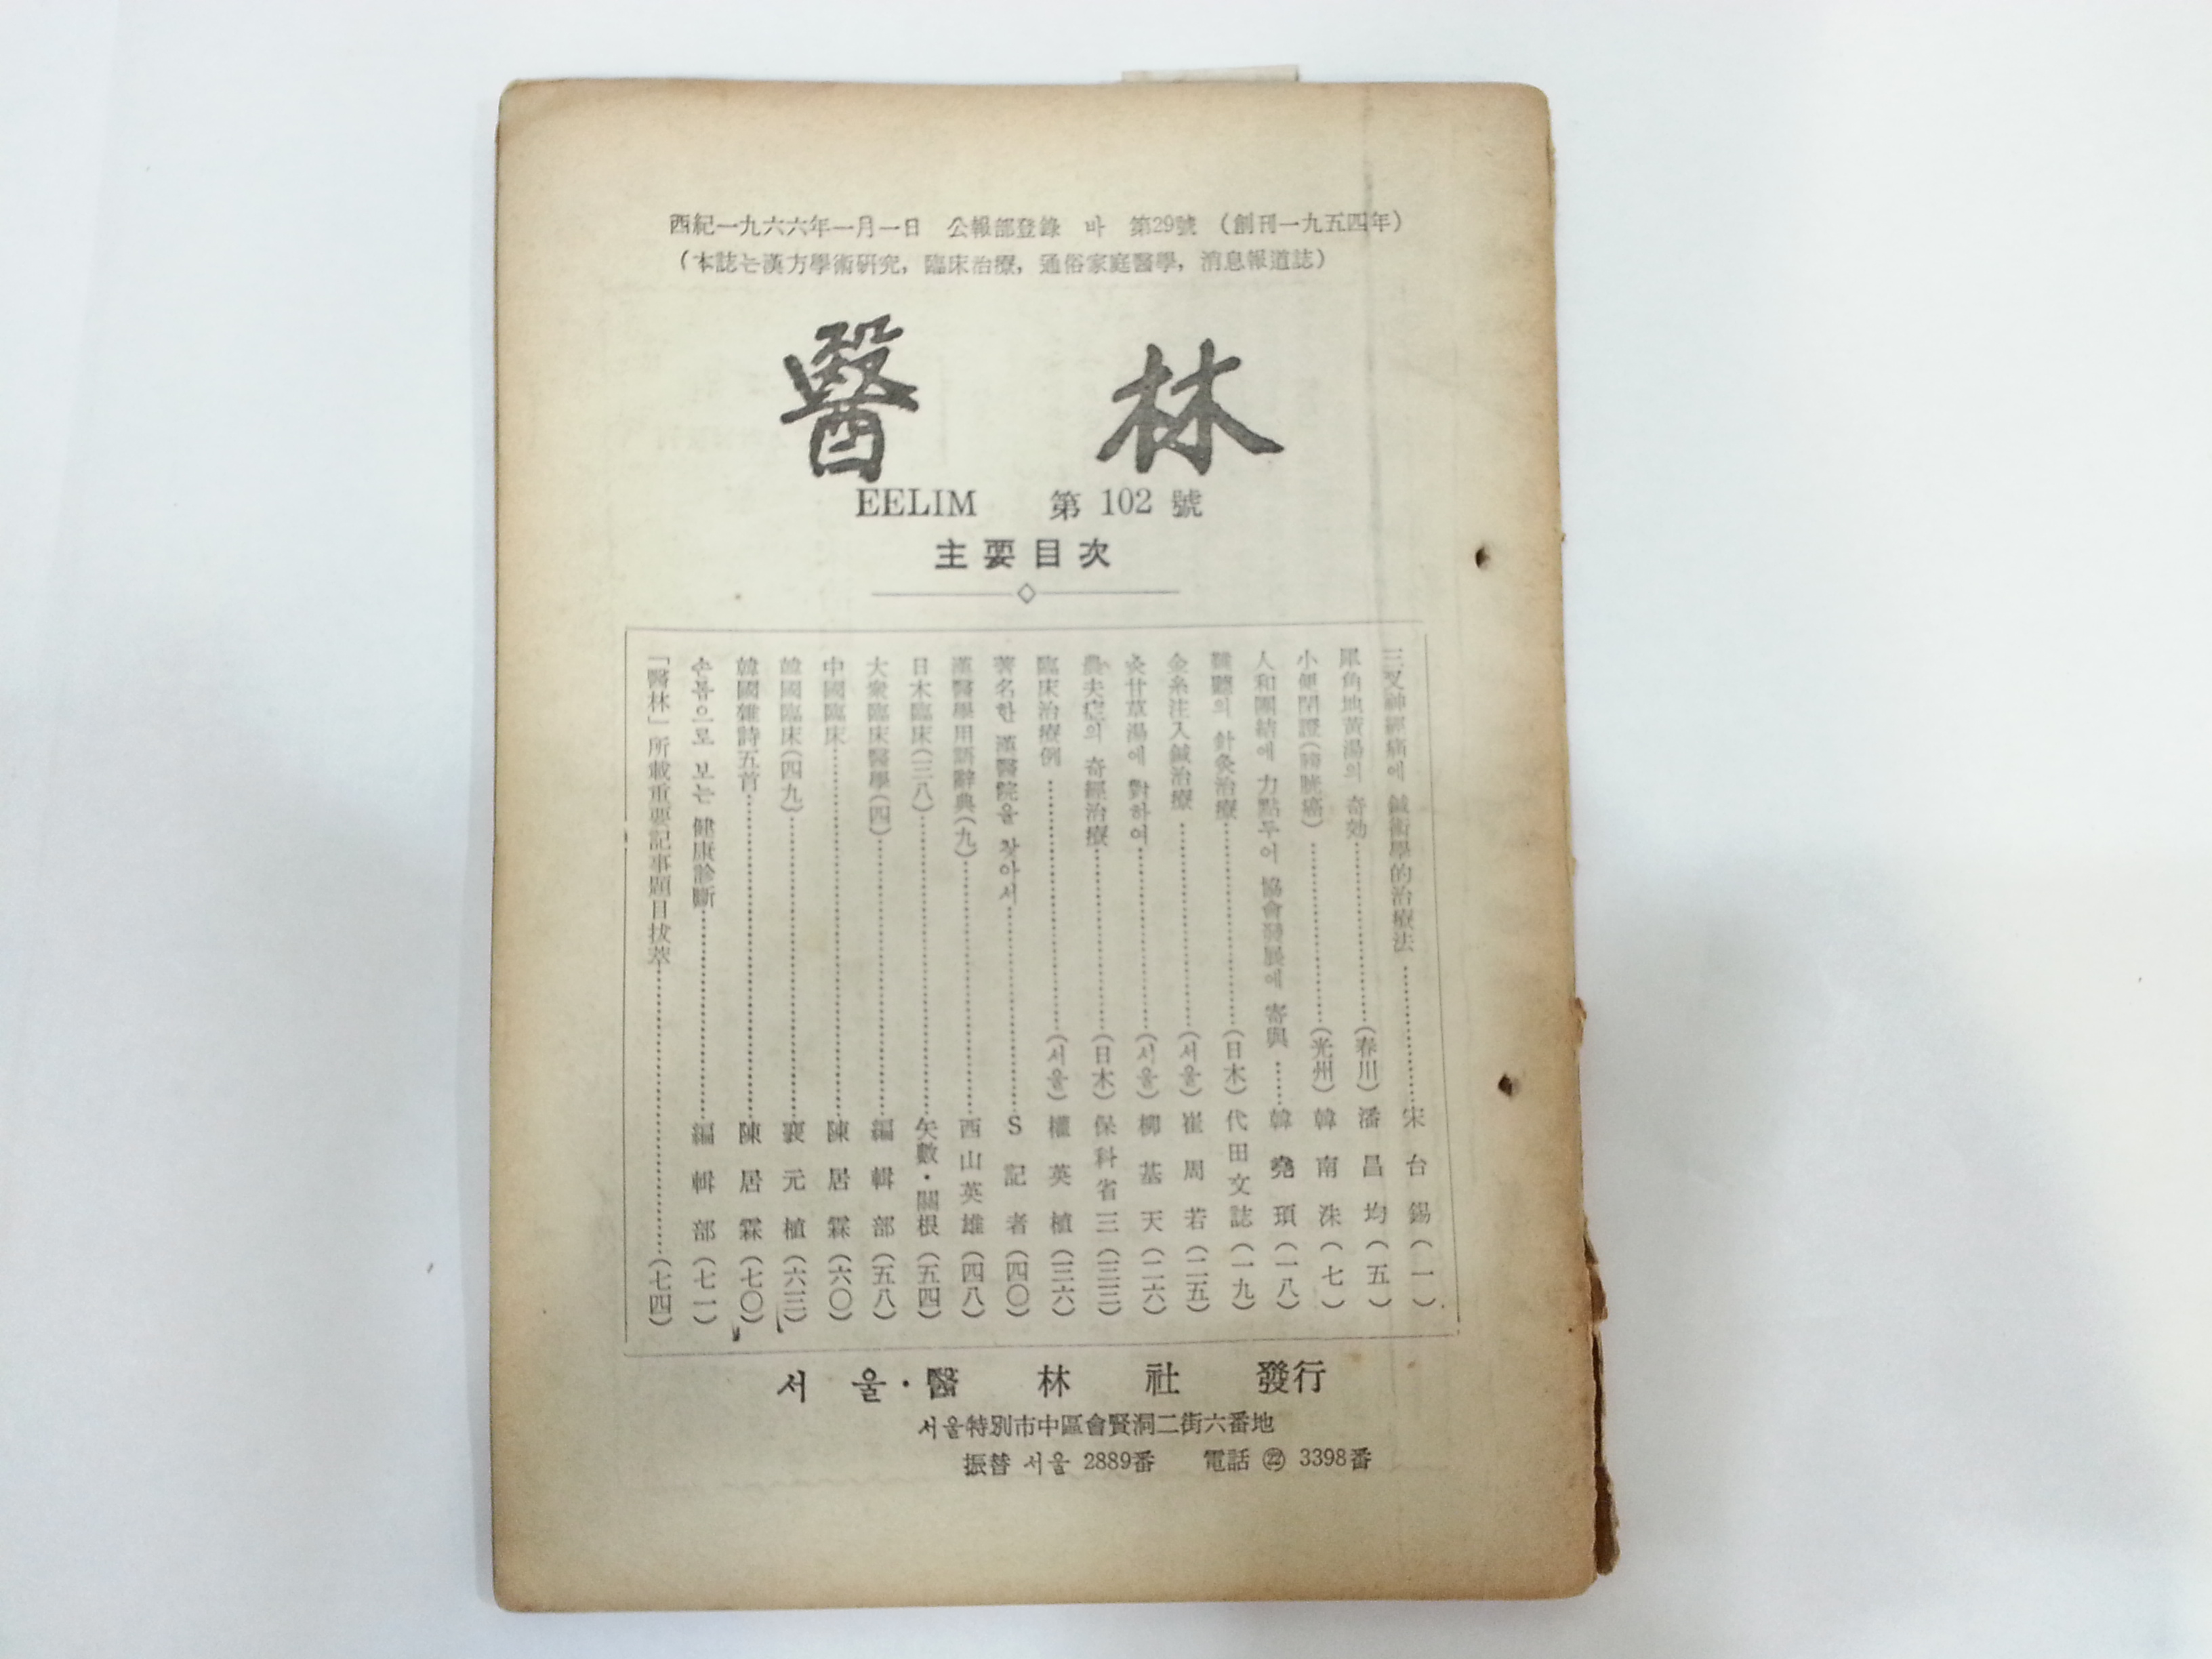 西紀一九六六年一月一日 公報部登錄 바 第29號 (創刊一九五四年)
(本誌는漢方學術硏究, 臨床治療, 通俗家庭醫學, 消息報道誌)
醫林
EELIM 第 102 號
主要目次
三叉神經痛에 鍼術學的治療法………宋台錫(一)
犀角地黃湯의 奇効………(春川)潘昌均(五)
小便閉證(膀胱癌)………(光州)韓南洙(七)
人和團結에 力點두어 協會發展에 寄與……韓堯頊(一八)
難聽의 針灸治療………(日本)代田文誌(一九)
金糸注入鍼治療………(서울)崔周若(二五)
灸甘草湯에 對하여………(서울)柳基天(二六)
農夫症의 奇經治療………(日本)保科省三(三三)
臨床治療例………(서울)權英植(三六)
著名한 漢醫院을 찾아서………S記者(四〇)
漢醫學用語辭典(九)………西山英雄(四八)
日本臨床(三八)………矢數・關根(五四)
大衆臨床醫學(四)………編輯部(五八)
中國臨床………陳居霖(六〇)
韓國臨床(四九)………裵元植(六三)
韓國雜詩五首………陳居霖(七〇)
손톱으로 보는 健康診斷………編輯部(七一)
「醫林」所載重要記事題目拔萃………(七四)
서울・醫林社 發行
서울特別市中區會賢洞二街六番地
振替 서울 2889番 電話 ㉒ 3398番